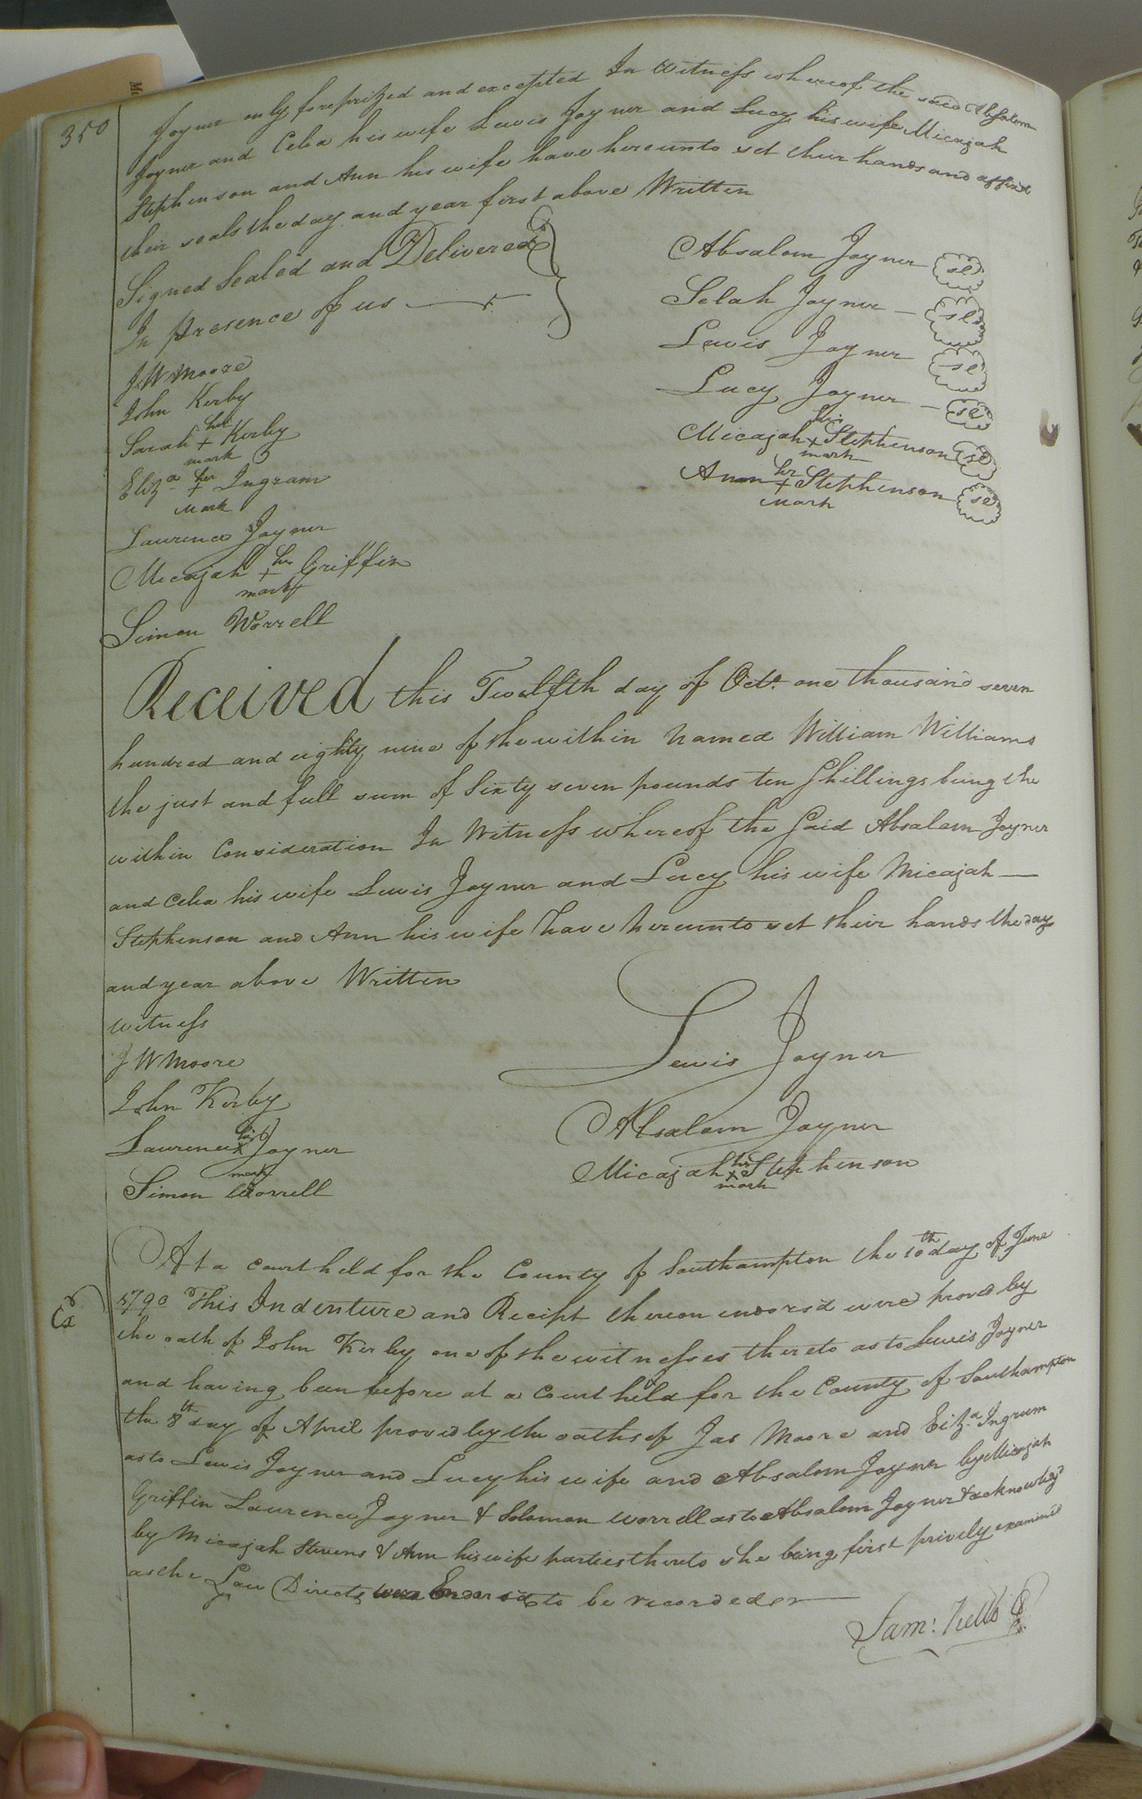 350
Joyner only foreprized and excepted In Witness whereof the said Absalom
Joyner and Celia his wife Lewis Joyner and Lucy his wife Micajah
Stephenson and Ann his wife have hereunto set their hands and affixt
their seals the day and year first above Written
Signed Sealed and Delivered
In presence of us
Absalom Joyner se
Selah Joyner se
Lewis Joyner se
Lucy Joyner se
his
Micajah + Stephenson se
mark
her
Ann + Stephenson se
mark
J W Moore
John Kerby
her
Sarah + Kerby
mark
Eliza her + Ingram
mark
Laurence Joyner
Micajah his + Griffin
mark
Simon Worrell
Received this Twelfth day of Octr. one thousand seven
hundred and eighty nine of the within Named William Williams
the just and full sum of Sixty seven pounds ten Shillings being the
within Consideration In Witness whereof the Said Absalom Joyner
and Celia his wife Lewis Joyner and Lucy his wife Micajah
Stephenson and Ann his wife have hereunto set their hands the day
and year above Written
witness
J W Moore
John Kerby
his
Laurence x Joyner
mark
Simon Worrell
Lewis Joyner
Absalom Joyner
Micajah his x Stephenson
mark
At a court held for the County of Southampton the 10th day of June
1790 This Indenture and Receipt thereon endorsd were proved by
the oath of John Kerby one of the witnesses thereto as to Lewis Joyner
and having been before at a Court held for the County of Southampton
the 8th day of April proved by the oaths of Jas Moore and Eliza Ingrum
as to Lewis Joyner and Lucy his wife and Absalom Joyner by Micajah
Griffin Laurence Joyner & Solomon Worrell as to Absalom Joyner & acknowlegd
by Micajah Stevens & Ann his wife parties thereto she being first privily examined
as the Law Directs was to be recorded
Ex
Sam: Kello